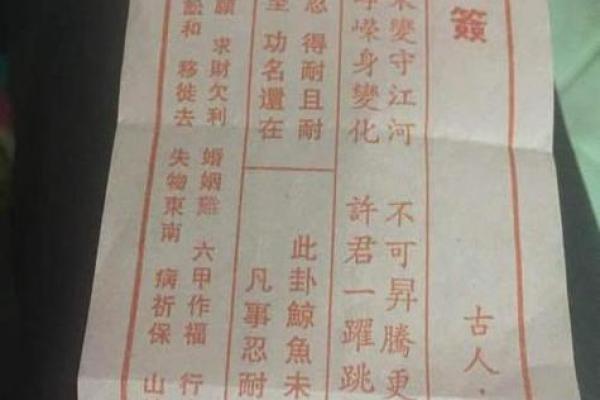 簽
古人．
未變守江河 不可昇騰更
崢嶸身變化 許君一躍跳
忍 得耐且耐
功名還在
此卦鯨魚未
凡事忍耐
願 求財欠利 婚姻難 六甲作福 行
訟和 移徙去 失物東南 病祈保 山